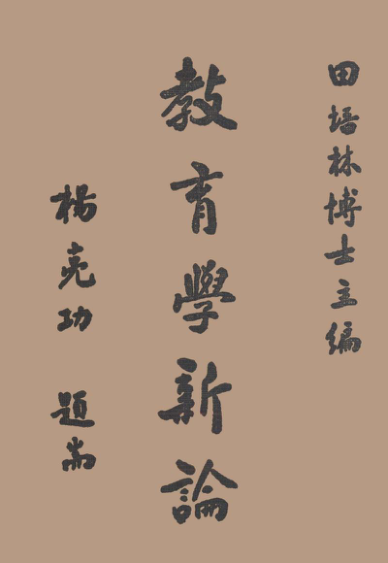 田培林博士主編
教育學新論
楊亮功 題耑